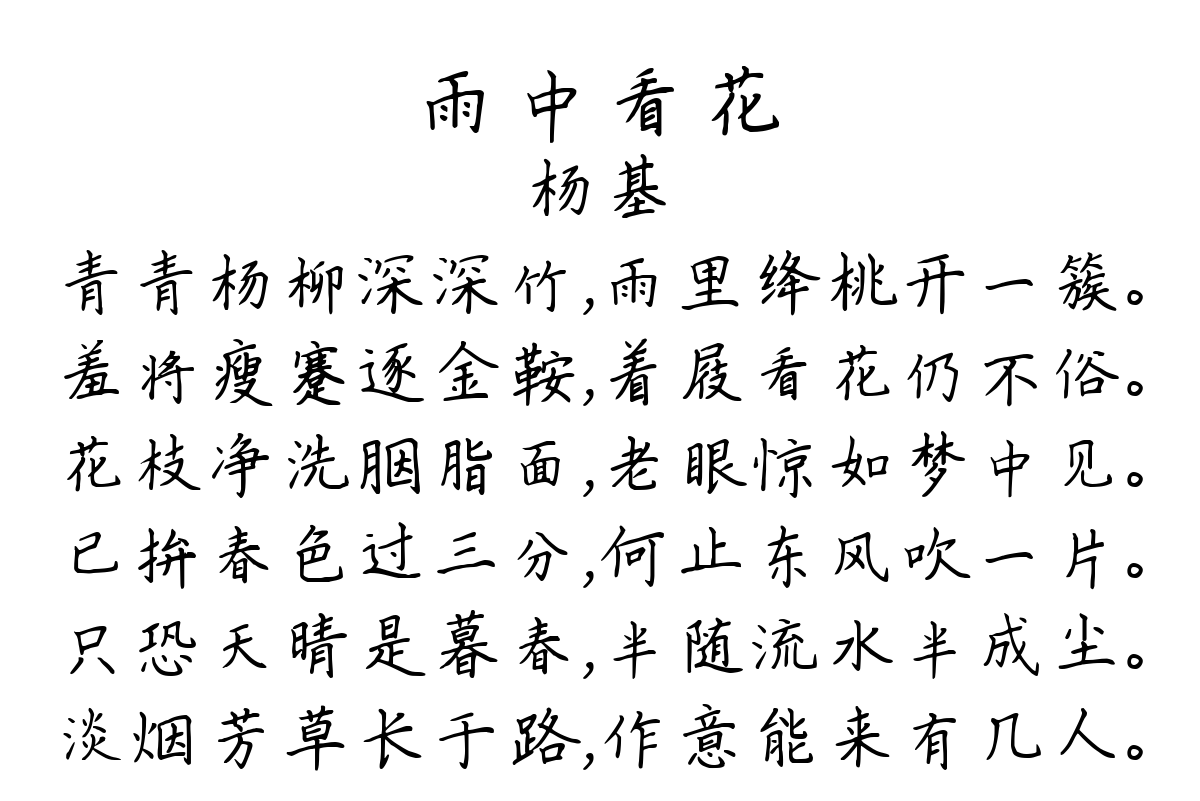 雨中看花
杨基
青青杨柳深深竹,雨里绛桃开一簇。
羞将瘦蹇逐金鞍,着屐看花仍不俗。
花枝净洗胭脂面,老眼惊如梦中见。
已拚春色过三分,何止东风吹一片。
只恐天晴是暮春,半随流水半成尘。
淡烟芳草长干路,作意能来有几人。